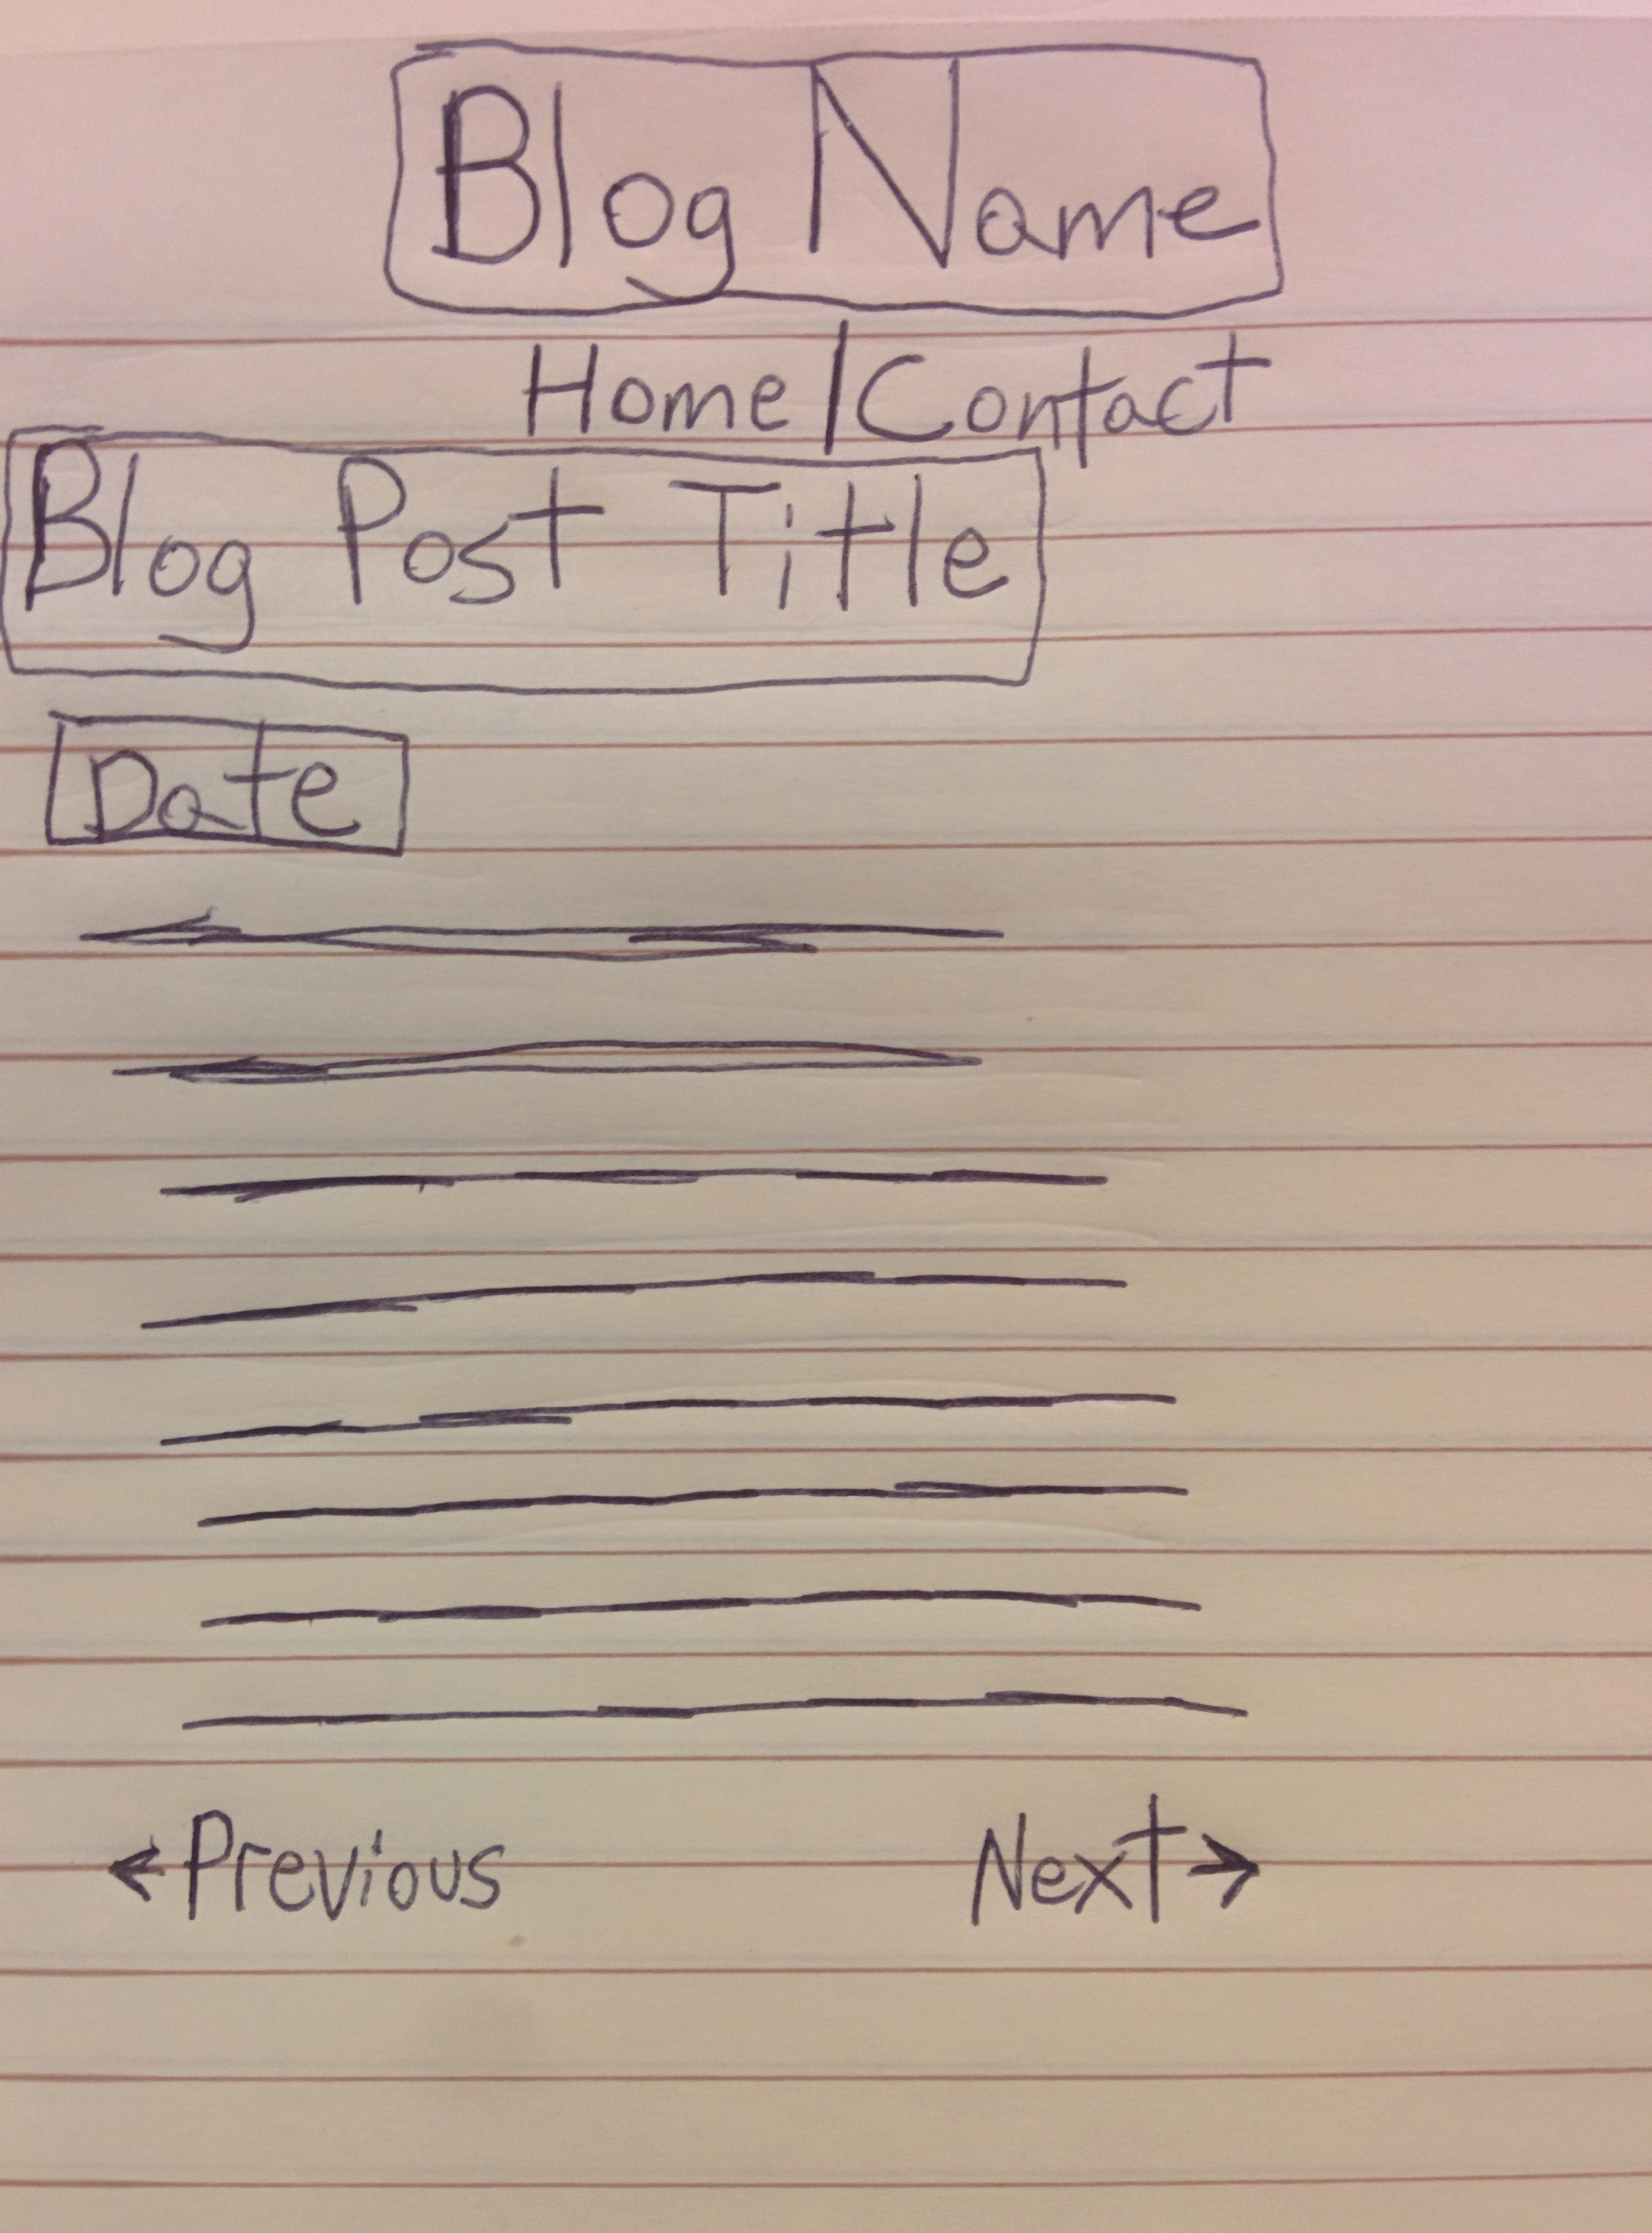 Blog Name
Home/Contact
Blog Post Title
Date
←Previous Next→